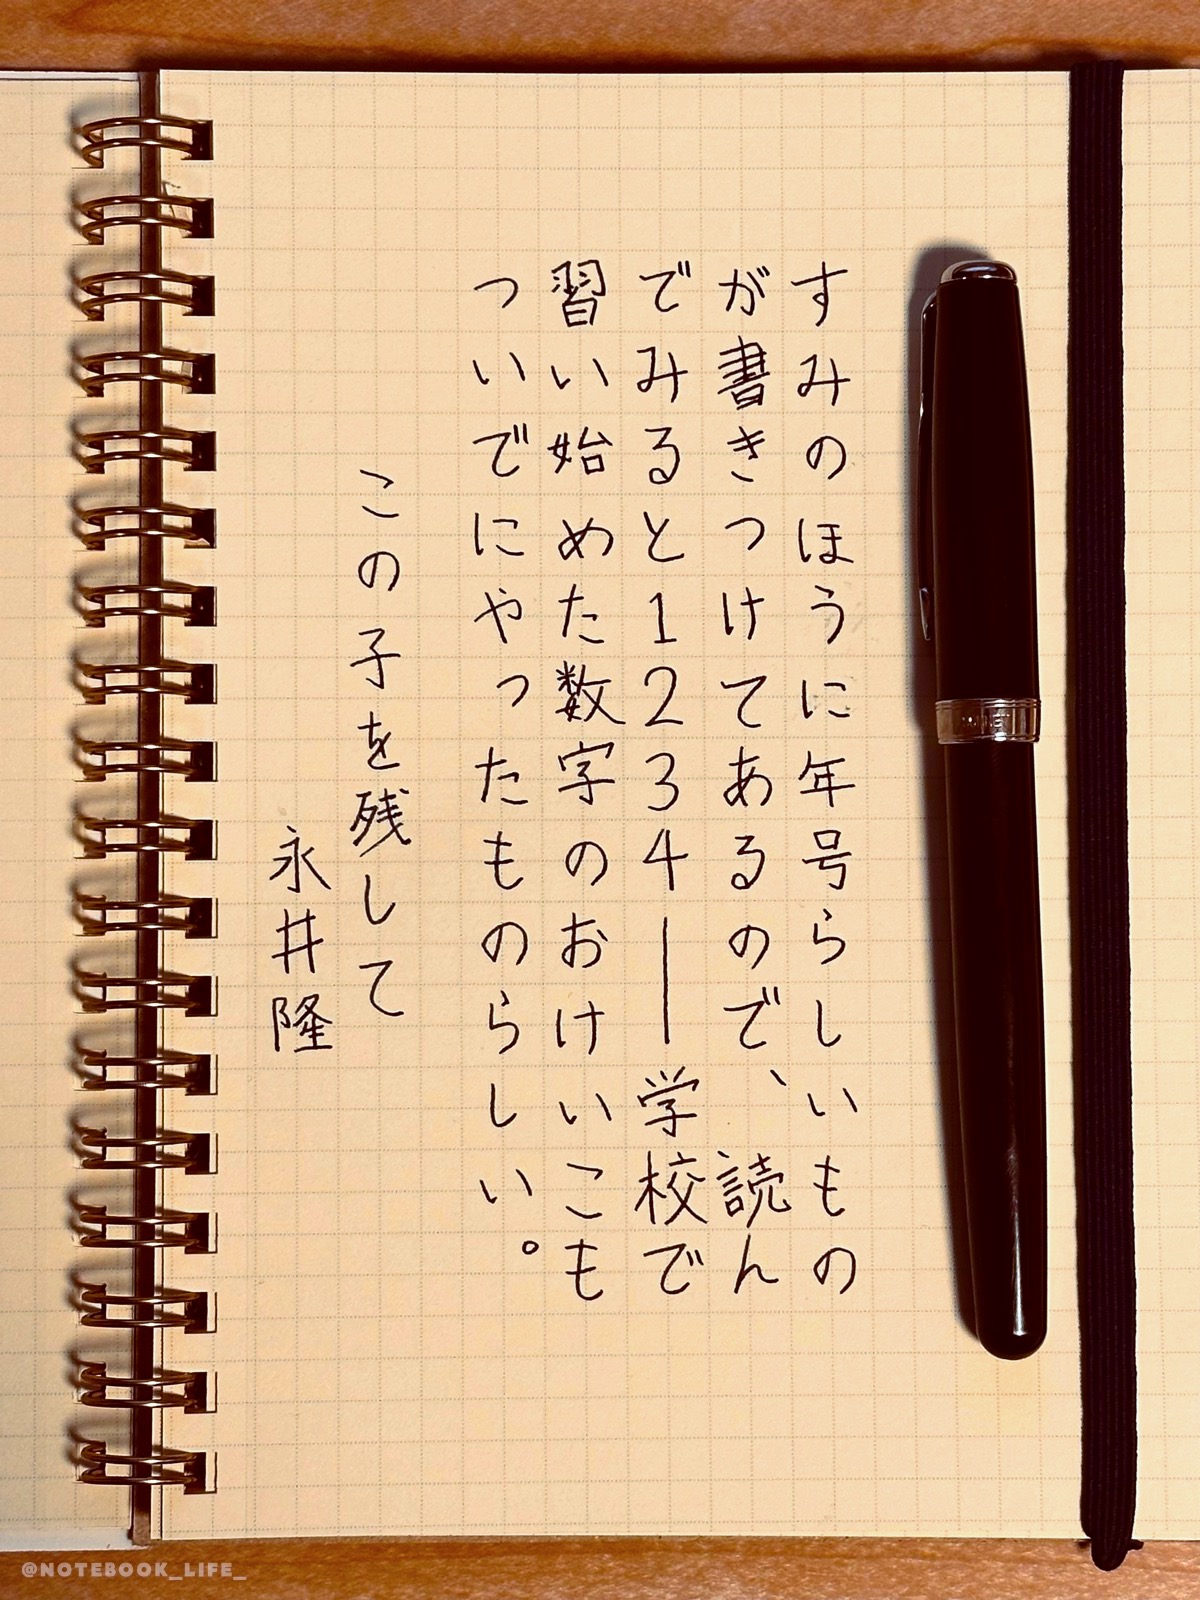 すみのほうに年号らしいもの
が書きつけてあるので、読ん
でみると1234―学校で
習い始めた数字のおけいこも
ついでにやったものらしい。
この子を残して
永井隆
@NOTEBOOK_LIFE_